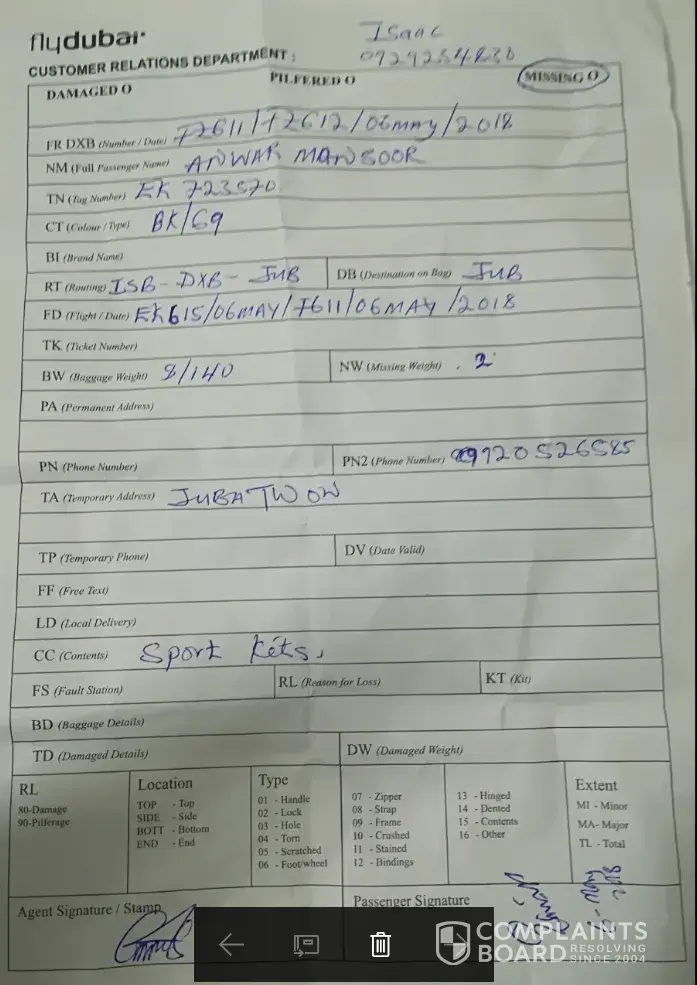 flydubai
Isaac
CUSTOMER RELATIONS DEPARTMENT : 0929254830
DAMAGED O PILFERED O MISSING O
FR DXB (Number / Date) FZ611/FZ612/06MAY/2018
NM (Full Passenger Name) ANWAR MANSOOR
TN (Tag Number) EK 723570
CT (Colour / Type) BK/69
BI (Brand Name)
RT (Routing) ISB-DXB-JUB DB (Destination on Bag) JUB
FD (Flight / Date) EK615/06MAY/F611/06MAY/2018
TK (Ticket Number)
BW (Baggage Weight) 8/140 NW (Missing Weight) . 2
PA (Permanent Address)
PN (Phone Number) PN2 (Phone Number) 0920526585
TA (Temporary Address) JUBA TWOW
TP (Temporary Phone) DV (Date Valid)
FF (Free Text)
LD (Local Delivery)
CC (Contents) Sport kets,
FS (Fault Station) RL (Reason for Loss) KT (Kit)
BD (Baggage Details)
TD (Damaged Details) DW (Damaged Weight)
RL
80-Damage
90-Pilferage
Location
TOP - Top
SIDE - Side
BOTT - Bottom
END - End
Type
01 - Handle
02 - Lock
03 - Hole
04 - Torn
05 - Scratched
06 - Foot/wheel
07 - Zipper
08 - Strap
09 - Frame
10 - Crushed
11 - Stained
12 - Bindings
13 - Hinged
14 - Dented
15 - Contents
16 - Other
Extent
MI - Minor
MA- Major
TL - Total
Agent Signature / Stamp Passenger Signature
COMPLAINTS
BOARD RESOLVING
SINCE 2004